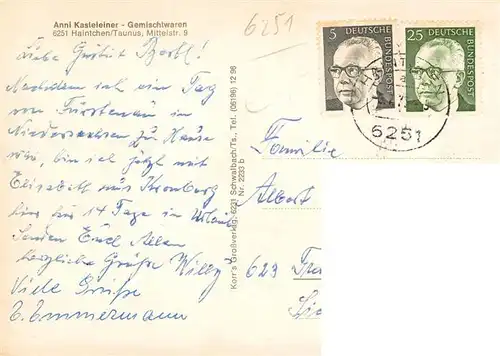 Anni Kasteleiner - Gemischtwaren
6251 Haintchen/Taunus, Mittelstr. 9
6251
Liebe Bärbl!
Nachdem ich ein Tag
von Fürstenau in
Niedersachsen zu Hause
war, bin ich jetzt mit
Elisabeth aus Kronberg
hier für 14 Tage in Urlaub
Senden Euch Allen
herzliche Grüße Willy
Viele Grüße
E. Emmermann
Korr's Großverlag, 6231 Schwalbach/Ts., Tel. (06196) 12 96
Nr. 2233 b
5
DEUTSCHE
BUNDESPOST
25
DEUTSCHE
BUNDESPOST
6251
Familie
Albert
623